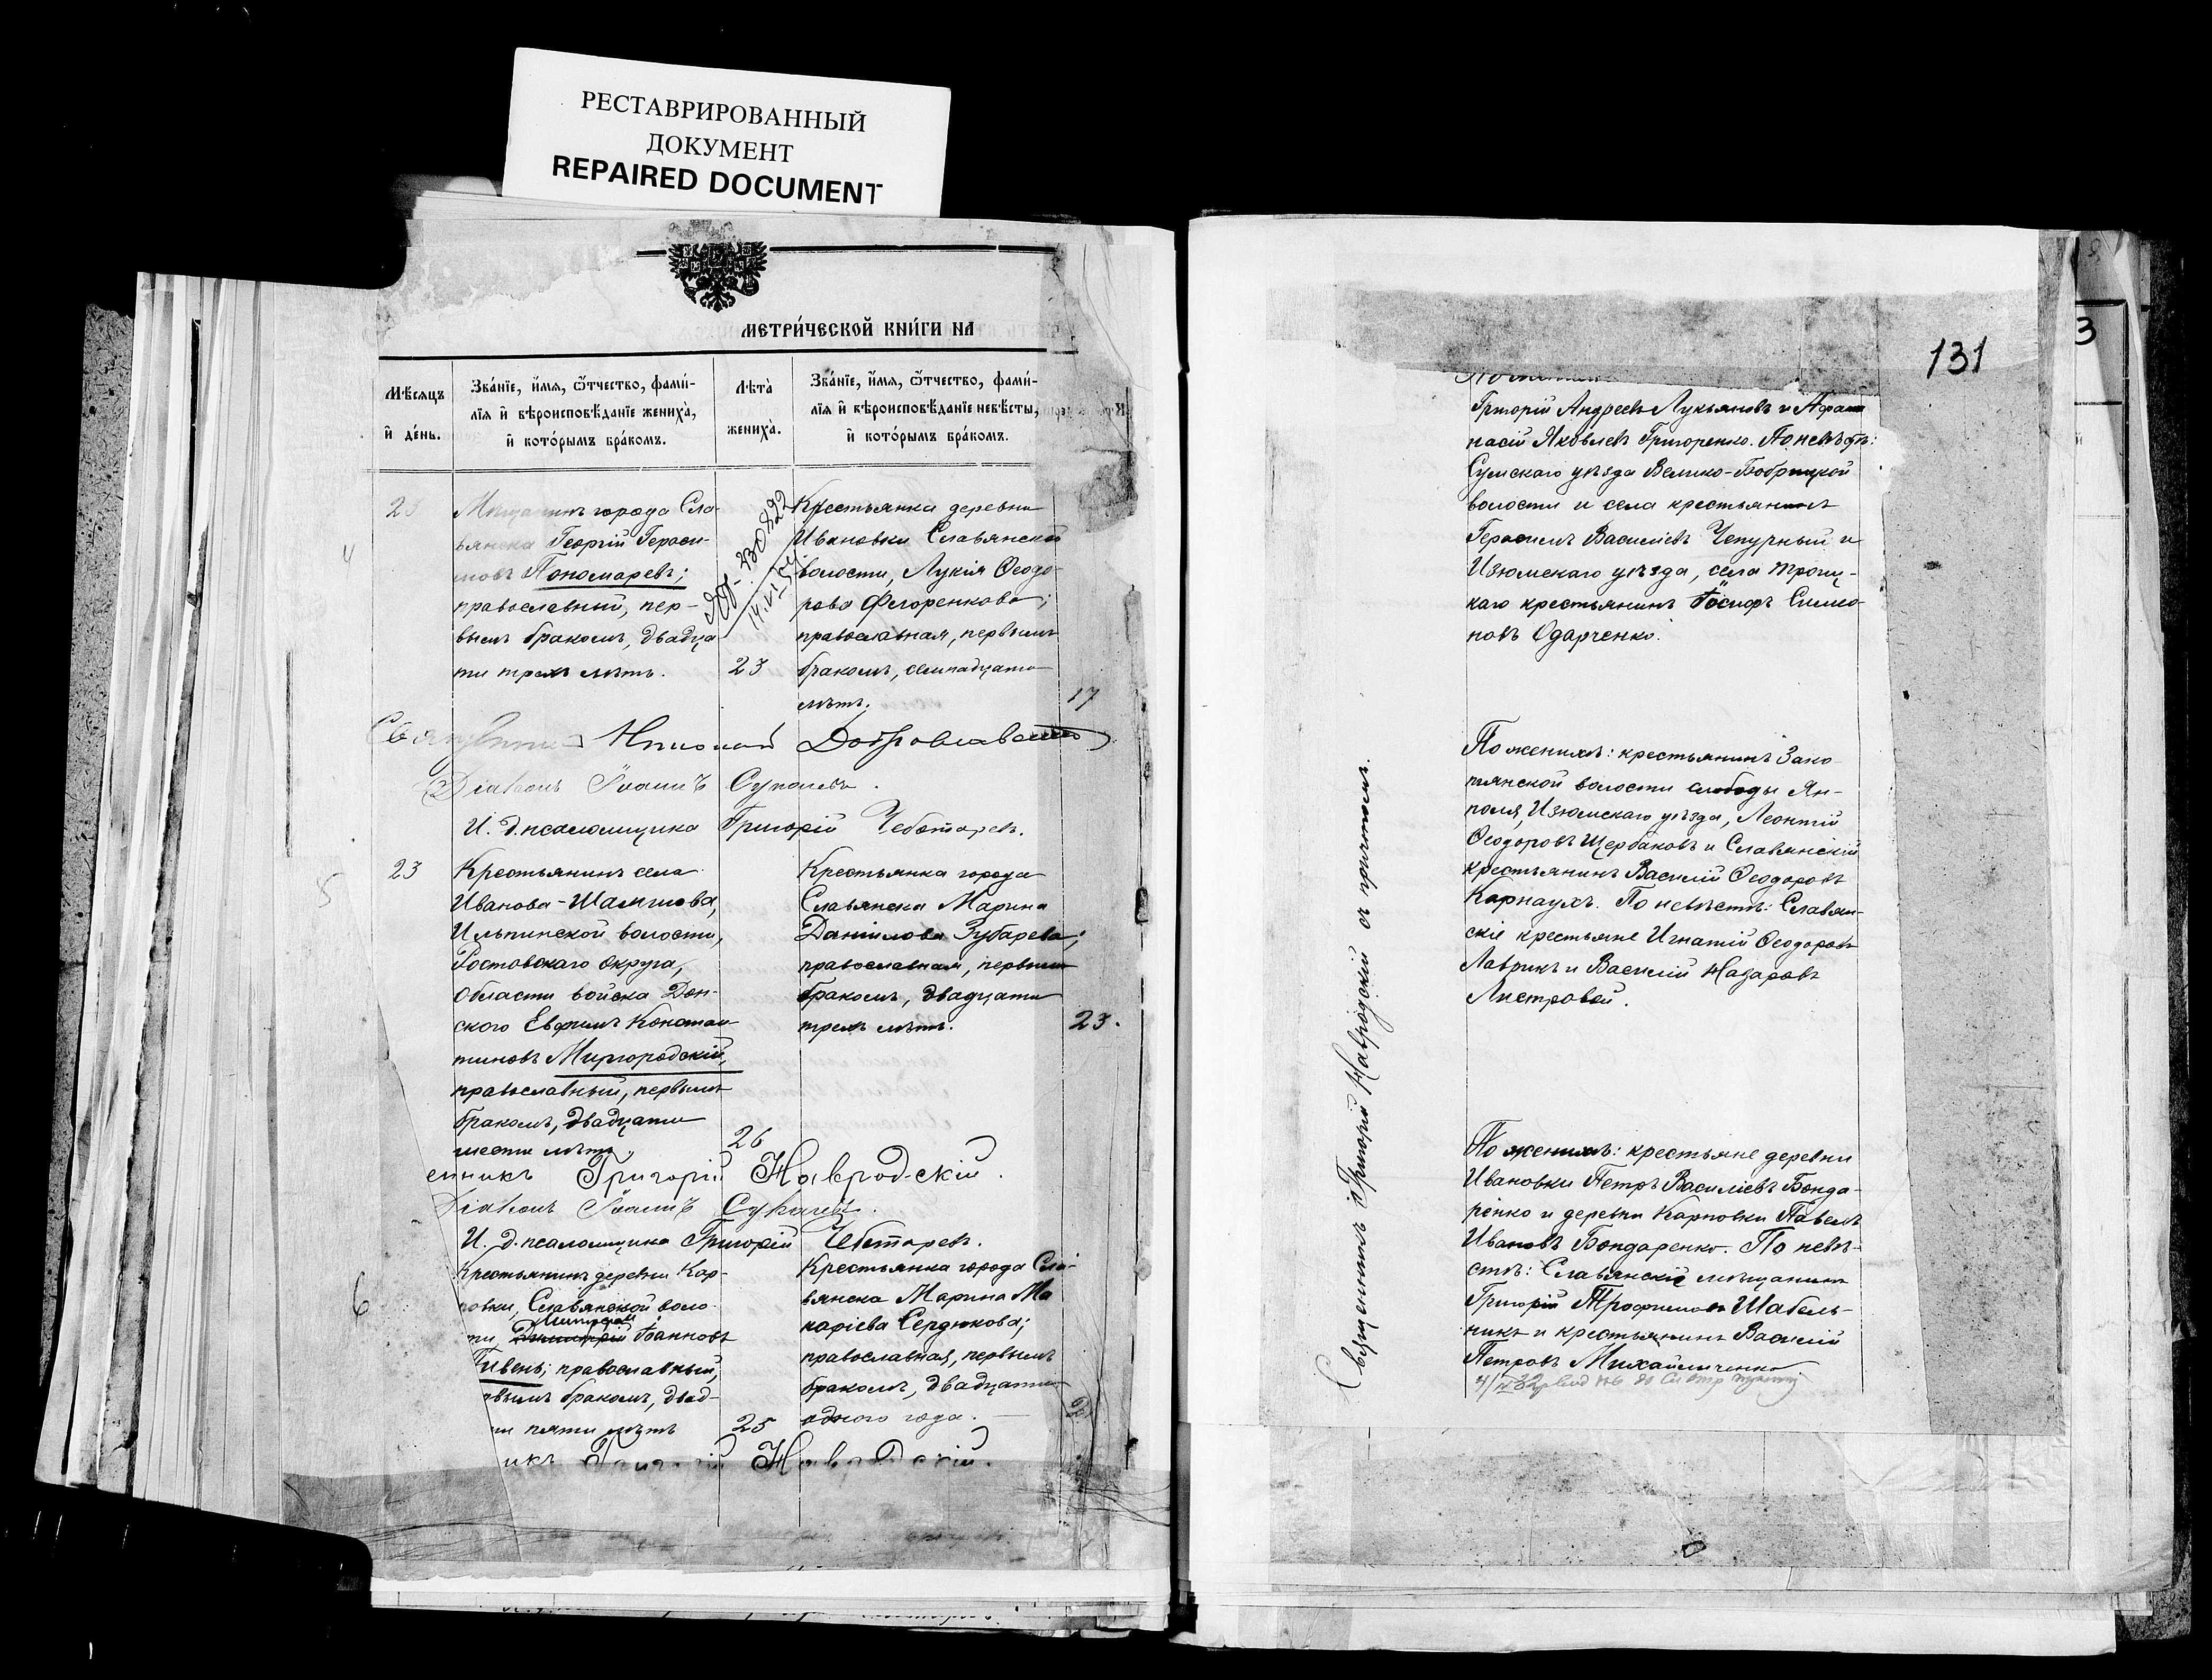 РЕСТАВРИРОВАННЫЙ
ДОКУМЕНТ
REPAIRED DOCUMENT
МЕТРИ́ЧЕСКОЙ КНИ́ГИ НА
Мѣ́сяцъ и҆ де́нь.
Зва́нїе, и҆́мѧ, ѻ҆́тчество, фами́-
лїѧ и҆ вѣроисповѣ́данїе женихà,
и҆ кото́рымъ бра́комъ.
Лѣтà
женихà.
Зва́нїе, и҆́мѧ, ѻ҆́тчество, фами́-
лїѧ и҆ вѣроисповѣ́данїе невѣ́сты,
и҆ кото́рымъ бра́комъ.
4
Мѣщанинъ города Сла-
вянска Георгій Гераси-
мовъ Пономаревъ;
православный, пер-
вымъ бракомъ, двадца
ти трехъ лѣтъ.
23
230822
Крестьянка деревни
Ивановки Славянской
волости, Лукія Ѳеодо-
рова Фегоренкова;
православная, первымъ
бракомъ, семнадцати
лѣтъ.
17
Священникъ Николай Доброславскій
Діаконъ Іоаннъ Сукачевъ.
И. д. псаломщика Григорій Чеботаревъ.
5
23
Крестьянинъ села
Иванова-Шамшова,
Ильинской волости,
Ростовскаго округа,
Области войска Дон-
ского Евфимъ Констан-
тиновъ Миргородскій,
православный, первымъ
бракомъ, двадцати
шести лѣтъ.
26
Крестьянка города
Славянска Марина
Даніилова Зубарева;
православная, первымъ
бракомъ, двадцати
трехъ лѣтъ.
23.
енникъ Григорій Навродскій.
Діаконъ Іоаннъ Сукачевъ.
И. д. псаломщика Григорій Чеботаревъ.
6
Крестьянинъ деревни Кар-
повки, Славянской воло-
ти Димитрій Іоанновъ
Пивень; православный,
рвымъ бракомъ, двад-
ти пяти лѣтъ
25
Крестьянка города Сла-
вянска Марина Ма
каріева Сердюкова;
православная, первымъ
бракомъ, двадцати
одного года.
икъ Григорій Навродскій.
131
3
Григорій Андреевъ Лукьяновъ и Афана
насій Яковлевъ Григоренко. По невѣстѣ:
Сумскаго уѣзда Велико-Бобрицкой
волости и села крестьянинъ
Герасимъ Василіевъ Чепурный и
Изюмскаго уѣзда, села Троиц-
каго крестьянинъ Іосифъ Симео-
новъ Одарченко.
По женихѣ: крестьянинъ Зако-
тянской волости слободы Ям-
поля, Изюмскаго уѣзда, Леонтій
Ѳеодоровъ Щербаковъ и Славянскій
крестьянинъ Василій Ѳеодоровъ
Карнаухъ. По невѣстѣ: Славян-
скіе крестьяне Игнатій Ѳеодоровъ
Лаврикъ и Василій Назаровъ
Листровой.
По женихѣ: крестьяне деревни
Ивановки Петръ Василіевъ Бонда-
ренко и деревни Карповки Павелъ
Ивановъ Бондаренко. По невѣ-
стѣ: Славянскіе мѣщанинъ
Григорій Трофимовъ Шабель-
никъ и крестьянинъ Василій
Петровъ Михайличенко
Священникъ Григорій Навродскій съ причтомъ.